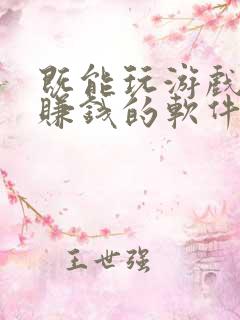 既能玩游戏
賺錢的軟件
王世强